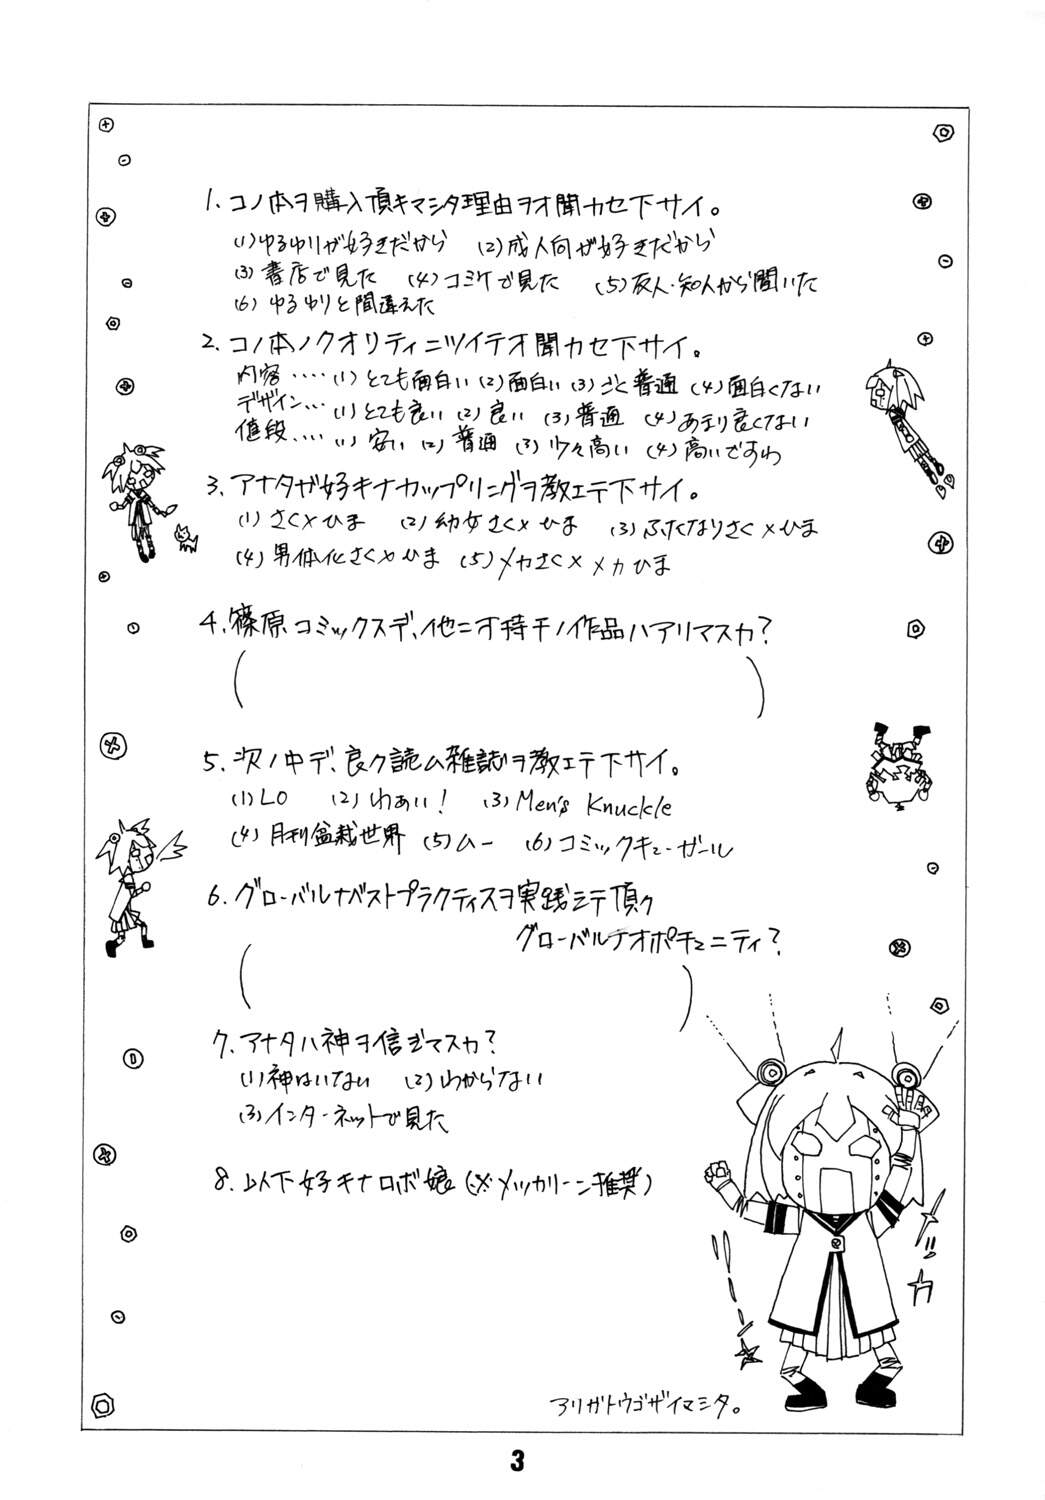 1. コノ本ヲ購入頂キマシタ理由ヲオ聞カセ下サイ。
(1)ゆるゆりが好きだから (2)成人向が好きだから
(3)書店で見た (4)コミケで見た (5)友人・知人から聞いた
(6)ゆるゆりと間違えた
2. コノ本ノクオリティニツイテオ聞カセ下サイ。
内容‥‥(1)とても面白い(2)面白い(3)ごく普通(4)面白くない
デザイン…(1)とても良い(2)良い (3)普通 (4)あまり良くない
値段‥‥(1)安い(2)普通(3)少々高い(4)高いですわ
3. アナタガ好キナカップリングヲ教エテ下サイ。
(1)さく×ひま (2)幼女さく×ひま (3)ふたなりさく×ひま
(4)男体化さく×ひま (5)メカさく×メカひま
4. 篠原コミックスデ、他ニオ持チノ作品ハアリマスカ?
( )
5. 次ノ中デ、良ク読ム雑誌ヲ教エテ下サイ。
(1)LO (2)わぁい! (3)Men's Knuckle
(4)月刊盆栽世界 (5)ムー (6)コミックキューガール
6. グローバルナベストプラクティスヲ実践シテ頂ク
グローバルナオポチュニティ?
( )
7. アナタハ神ヲ信ジマスカ?
(1)神はいない (2)わからない
(3)インターネットで見た
8. 以下好キナロボ娘(※メッカリーン推奨)
アリガトウゴザイマシタ。
3